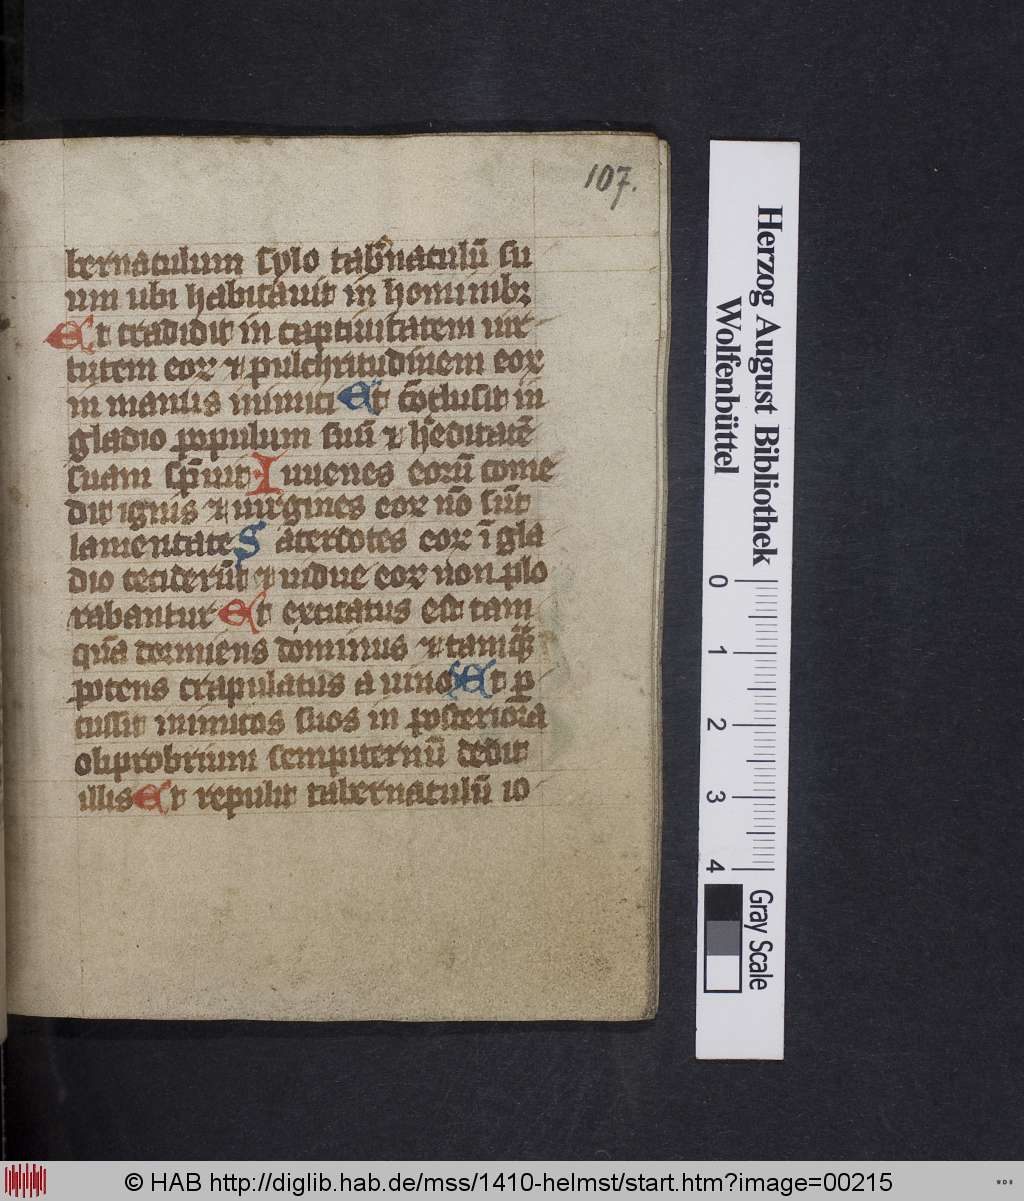 107.
bernaculum sylo tab̃naculũ su
um ubi habitauit in hominibꝫ
Et tradidit in captiuitatem uir
tutem eoꝝ ⁊ pulchritudinem eoꝝ
in manus inimici Et cõclusit in
gladio populum suũ ⁊ h̃editatẽ
suam sp̃uit Iuuenes eorũ come
dit ignis ⁊ uirgines eoꝝ nõ sũt
lamentate Sacerdotes eoꝝ ĩ gla
dio ceciderũt ⁊ uidue eoꝝ non plo
rabantur Et excitatus est tam
quã dormiens dominus ⁊ tamqã
potens crapulatus a uino Et ꝑ
cussit inimicos suos in posteriora
obprobrium sempiternũ dedit
illis Et repulit tabernaculũ io
Herzog August Bibliothek
Wolfenbüttel
0 1 2 3 4
Gray Scale
© HAB http://diglib.hab.de/mss/1410-helmst/start.htm?image=00215